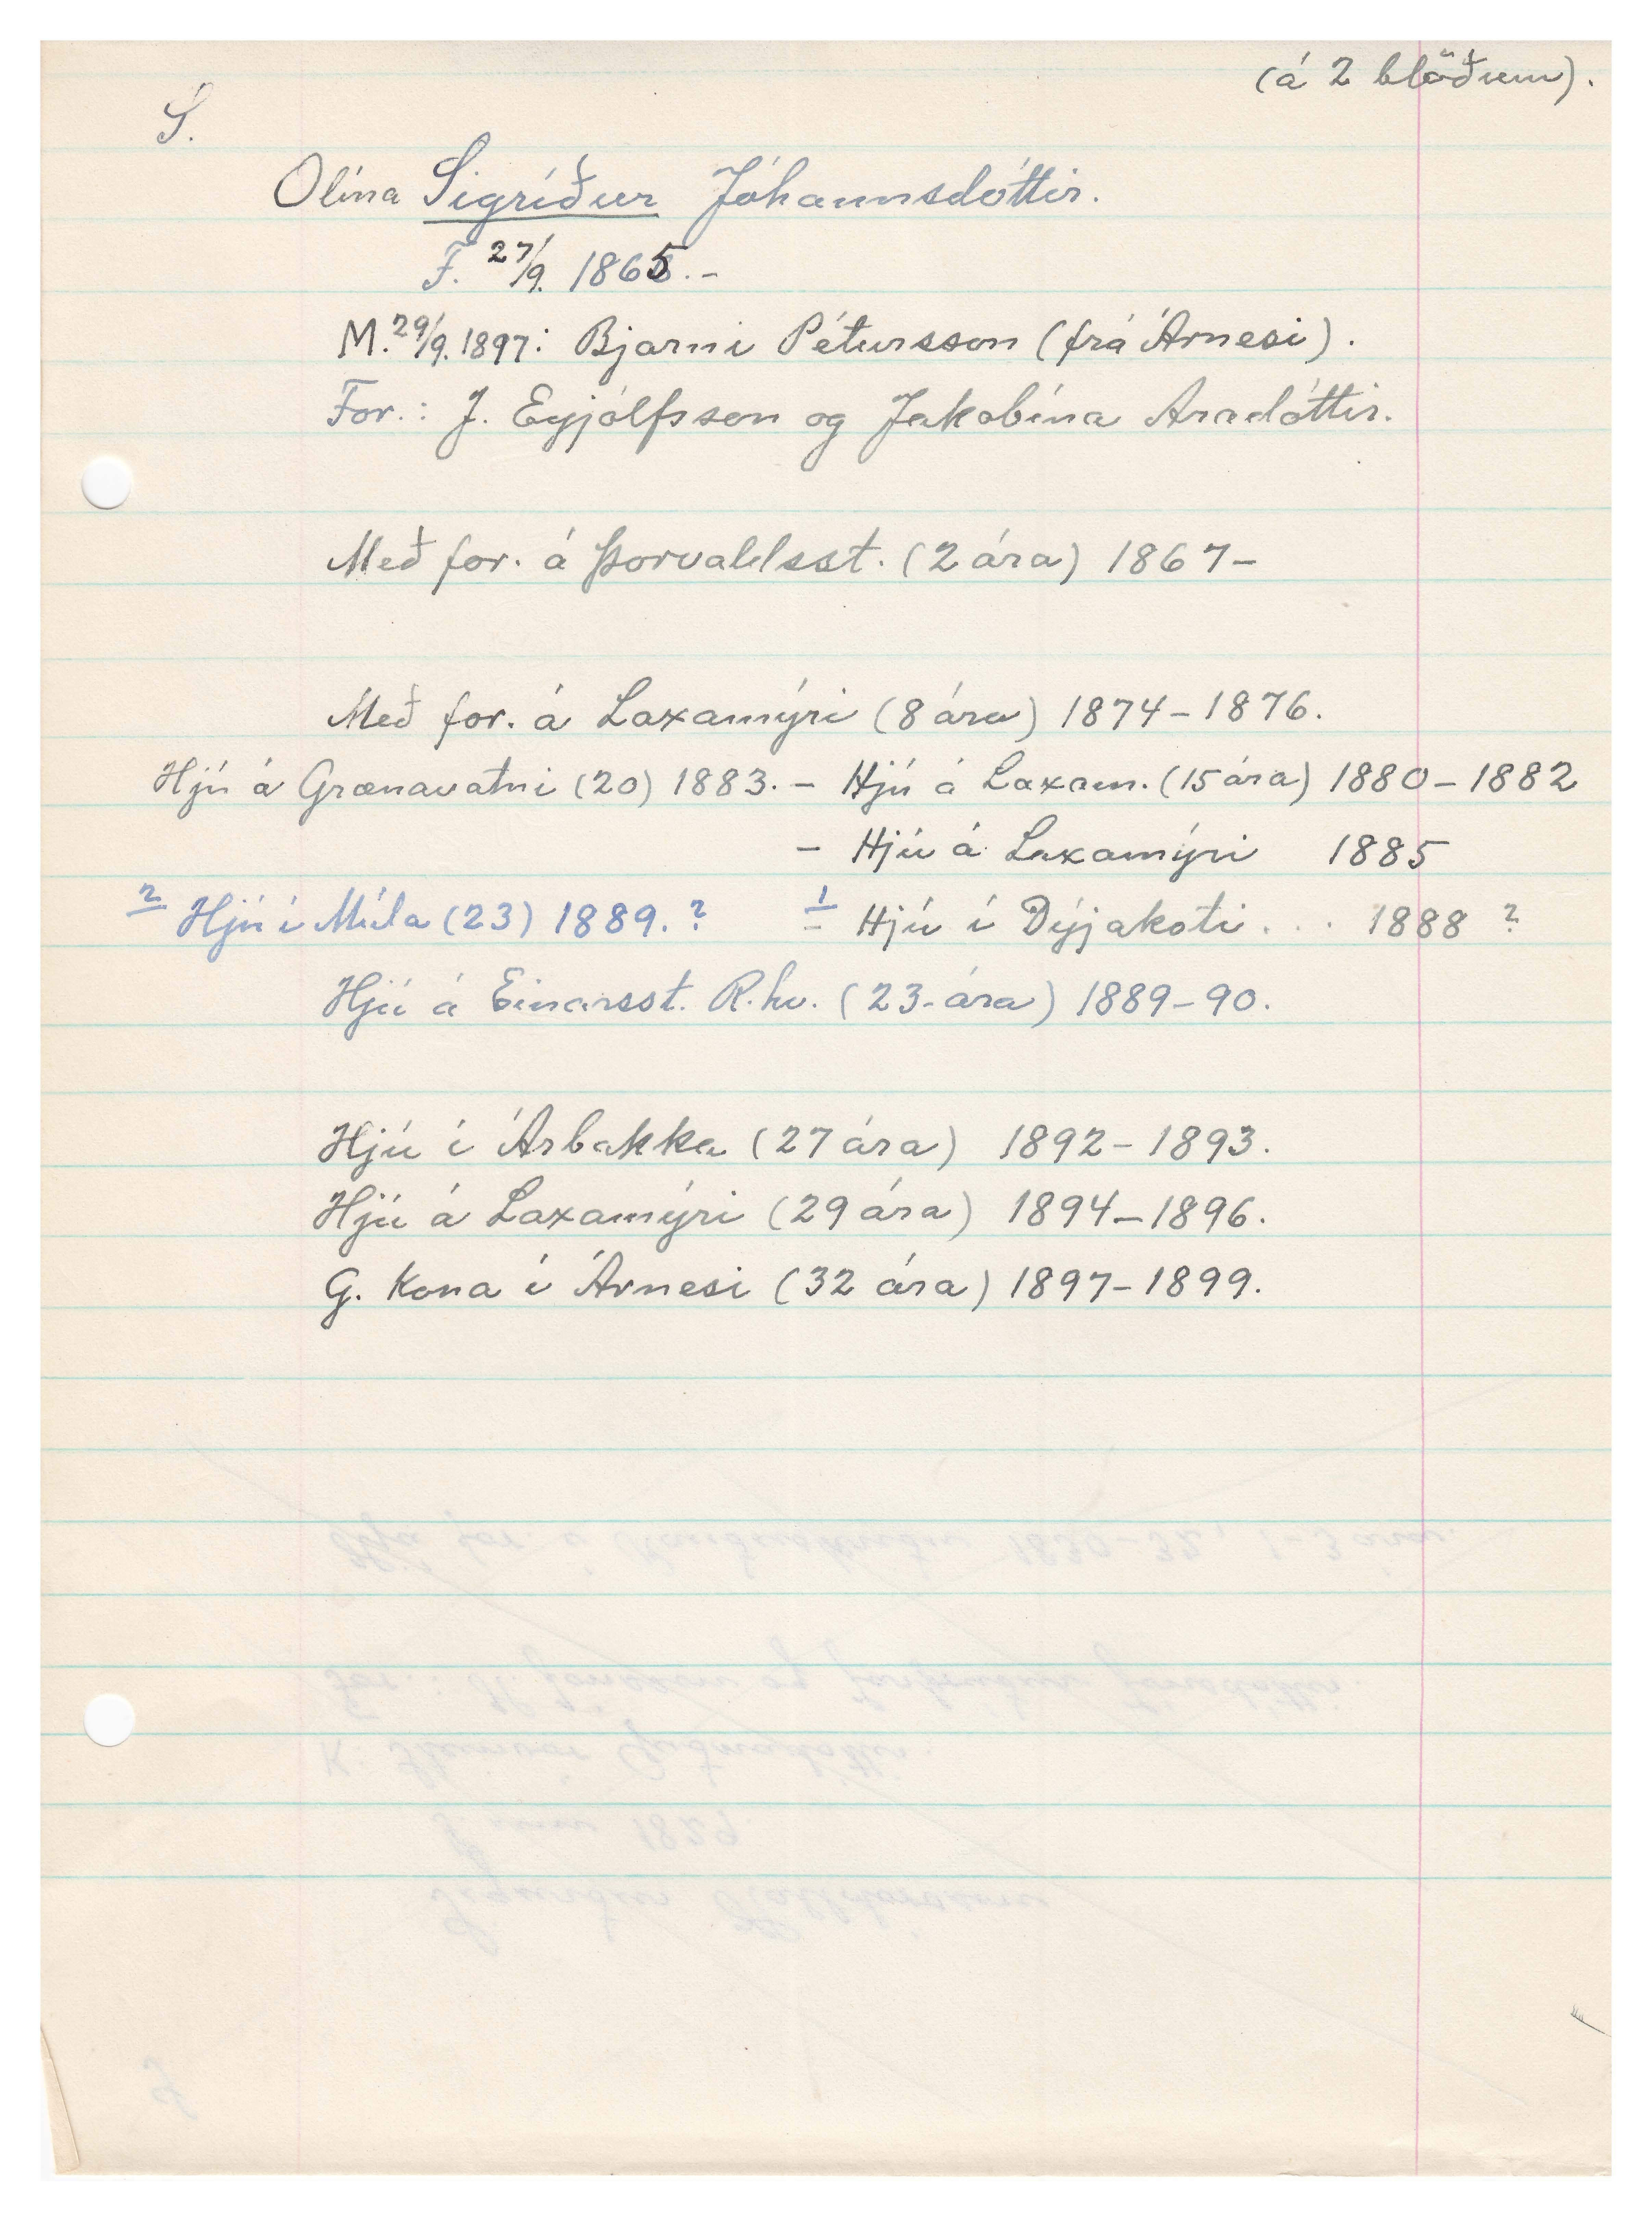 (á 2 blöðum).
S.
Olína Sigríður Jóhannsdóttir.
F. 27/9. 1865. -
M. 29/9. 1897: Bjarni Pétursson (frá Árnesi).
For.: J. Eyjólfsson og Jakobína Aradóttir.
Með for. á Þorvaldsst. (2 ára) 1867-
Með for. á Laxamýri (8 ára) 1874-1876.
Hjú á Grænavatni (20) 1883. - Hjú á Laxam. (15 ára) 1880-1882
- Hjú á Laxamýri 1885
2 Hjú í Múla (23) 1889. ? 1 - Hjú í Dýjakoti . . . 1888 ?
Hjú á Einarsst. R.hv. (23-ára) 1889-90.
Hjú í Árbakka (27 ára) 1892-1893.
Hjú á Laxamýri (29 ára) 1894-1896.
G. kona í Árnesi (32 ára) 1897-1899.